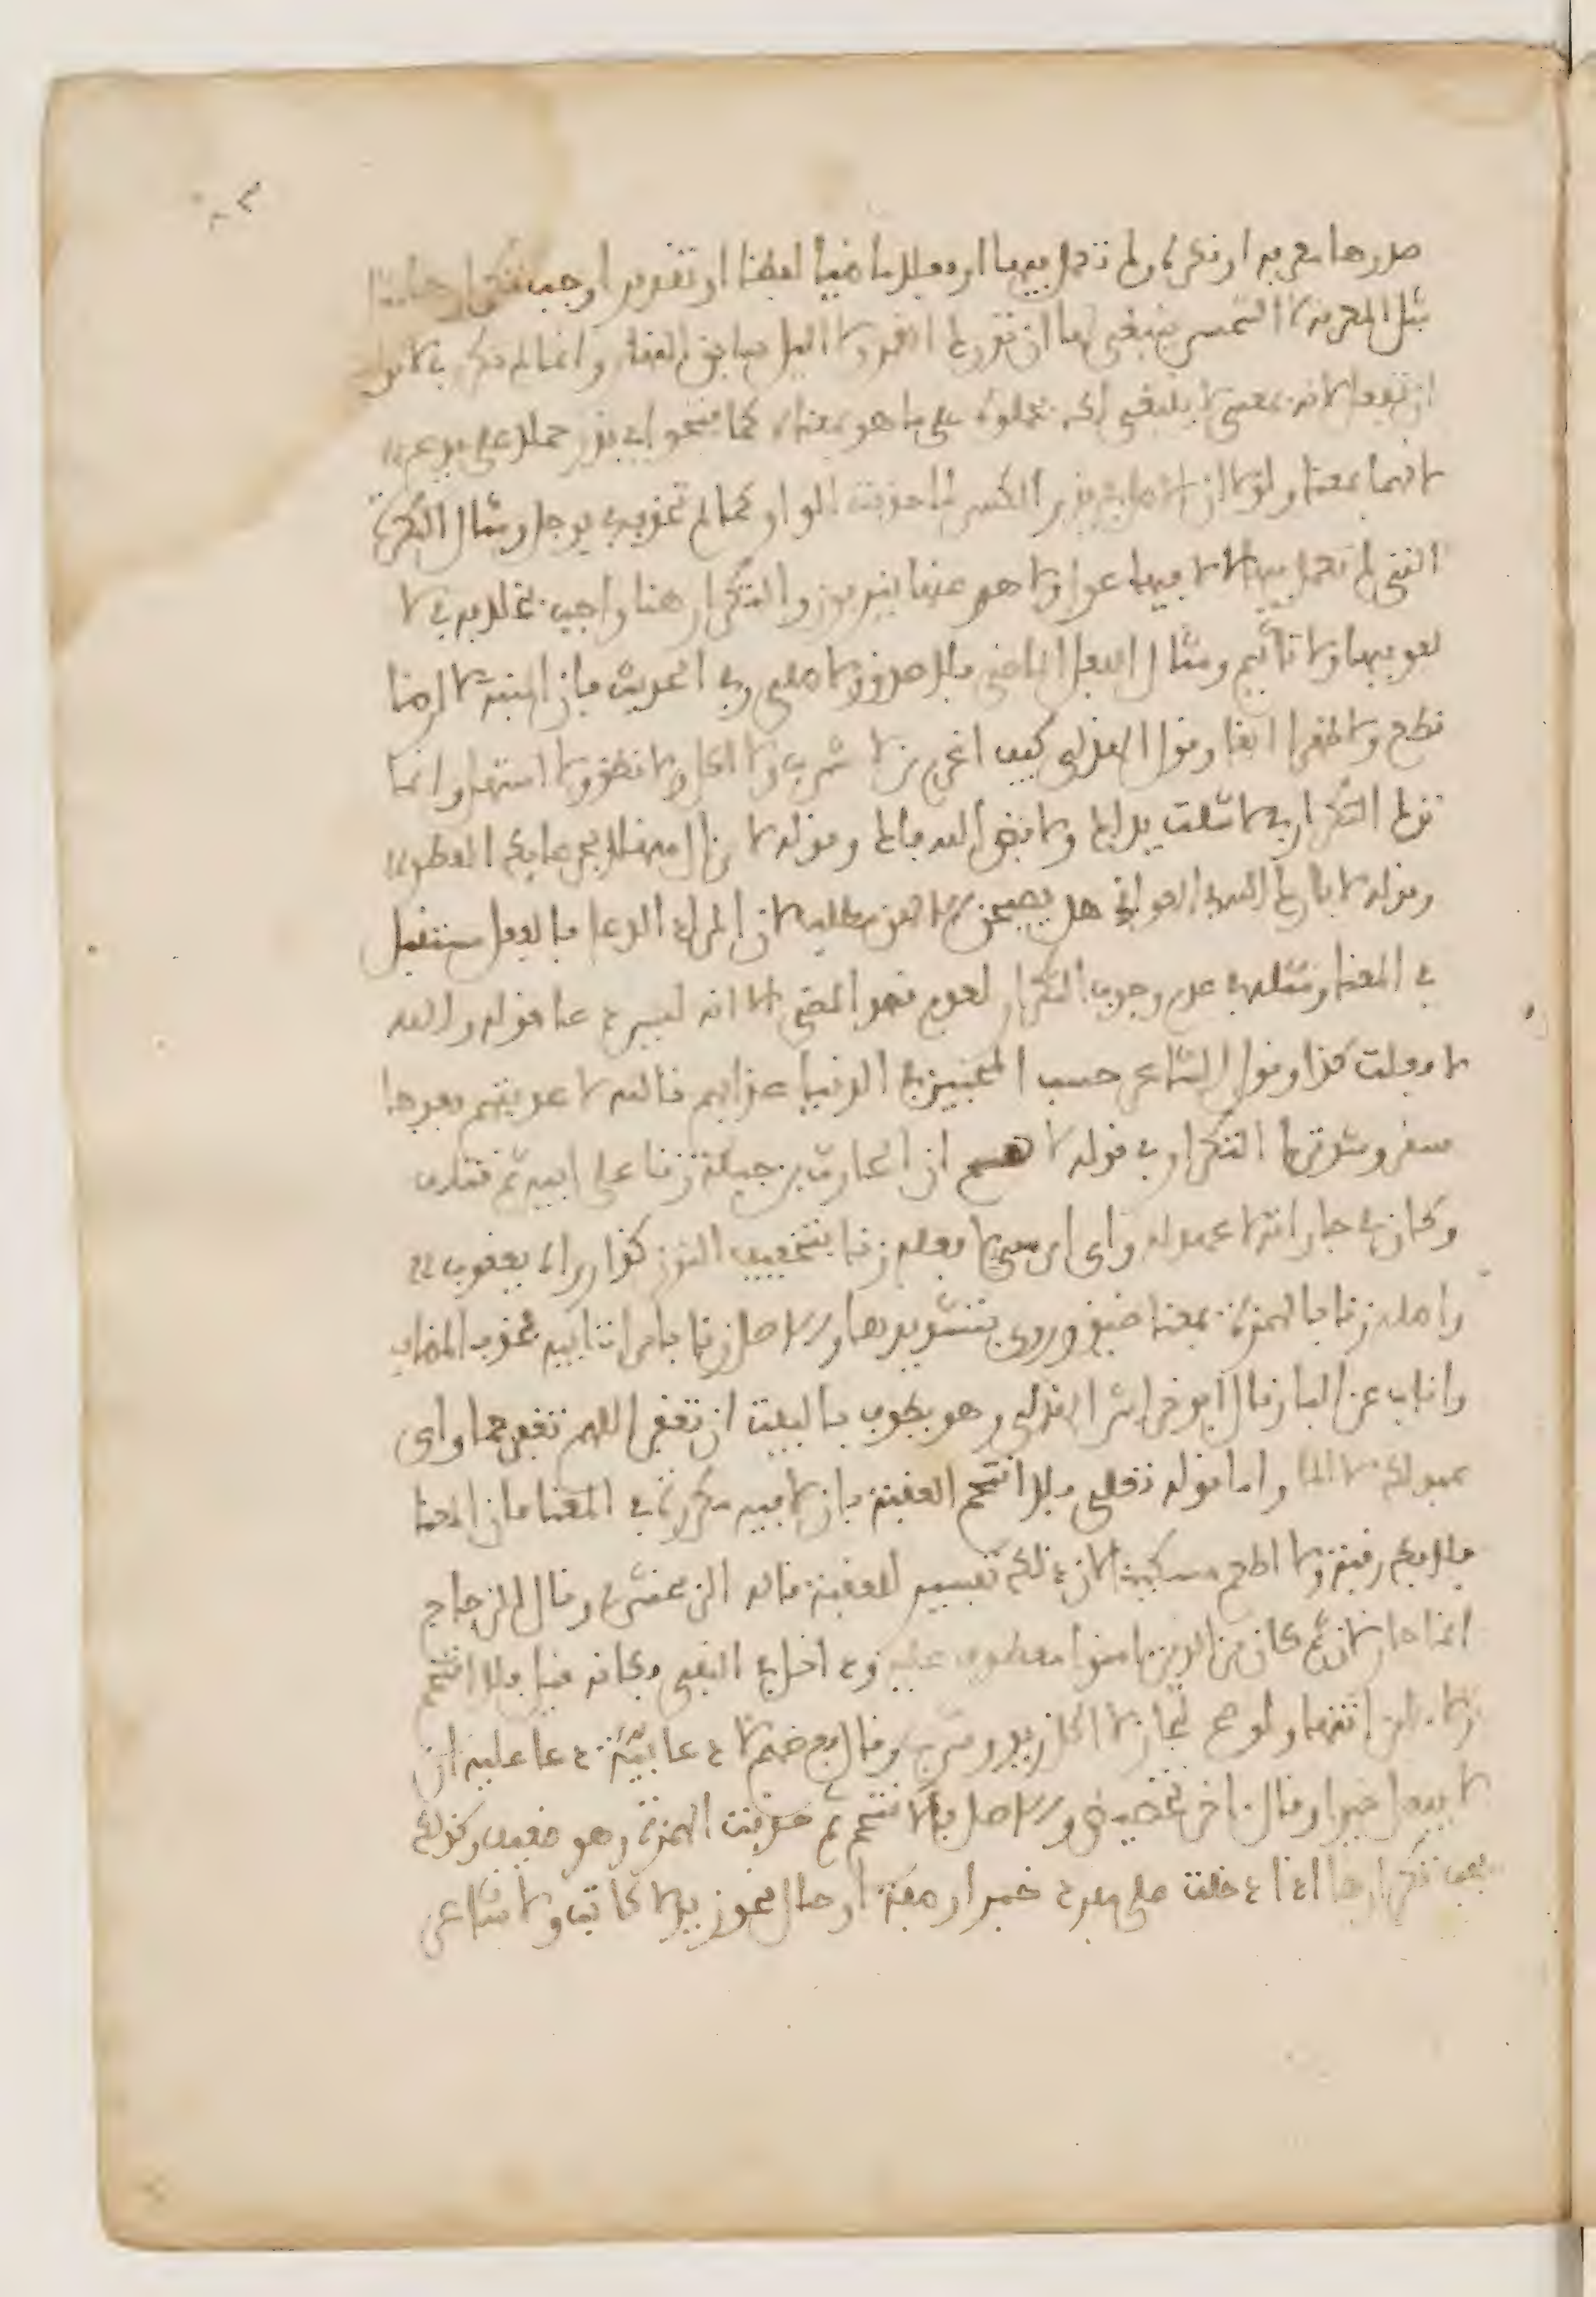 صدرها معرفة او نكرة ولم تعمل فيها او فعلا ماضيا لفظا او تقديرا وجب تكرارها مثال
مثل المعرفة لا الشمس ينبغي لها ان تدرك القمر ولا اليل سابق النهار وانما لم تكرر في لا نولك
ان تفعل لانه بمعنى لا ينبغي لك فحملوه على ما هو بمعناه كما فتحوا في يذر حملا على يدع
لانهما بمعنى ولولا ان الاصل في يذر الكسر لما حذفت الواو كما لم تحذف في يوجل ومثال النكرة
التي لم تعمل فيها لا لا فيها غول ولا هم عنها ينزفون والتكرار هنا واجب بخلافه في لا
لغو فيها ولا تاثيم ومثال الفعل الماضي فلا صدق ولا صلى وفي الحديث فان المنبت لا ارضا
قطع ولا ظهرا ابقا وقول الهذلي كيف اغرم من لا شرب ولا اكل ولا نطق ولا استهل وانما
ترك التكرار في لا شلت يداك ولا فض الله فاك وقوله لا زال منهلا بجرعايك القطر
وقوله لا بارك الله في الغواني هل يصبحن الا لهن مطلب لان المراد الدعا فالفعل مستقبل
في المعنى ومثله في عدم وجوب التكرار لعدم قصد المضي الا انه ليس دعا قولك والله
لا فعلت كذا وقول الشاعر حسب المحبين في الدنيا عذابهم تالله لا عذبتهم بعدها
سقر وشذ ترك التكرار في قوله لا هم ان الحارث بن جبلة زنا على ابيه ثم قتله
وكان في جاراته لا عهد له واي امر سيئ لا فعله زنا بتخفيف النون كذا رواه يعقوب
واصله زنا بالهمزة بمعنى ضيق وروي بتشديدها والاصل زنا بامراة ابيه فحذف المضاف
واناب عن البا وقال ابو خراش الهذلي وهو يطوف بالبيت ان تغفر اللهم تغفر جما واي
عبد لك لا الما واما قوله تعلى فلا اقتحم العقبة فان لا فيه مكررة في المعنى لان المعنى
فلا فك رقبة ولا اطعم مسكينا لان ذلك تفسير للعقبة قاله الزمخشري وقال الزجاج
انما جاز لان ثم كان من الذين امنوا معطوف عليه وداخل في النفي فكانه قيل فلا اقتحم
ولا امن انتهى ولو صح لجاز لا اكل زيد وشرب وقال بعضهم لا دعائية دعا عليه ان
لا يفعل خيرا وقال اخر تحضيض والاصل فالا اقتحم ثم حذفت الهمزة وهو ضعيف وكذلك
يجب تكرارها اذا دخلت على مفرد خبر او صفة او حال نحو زيد لا كاتب ولا شاعر